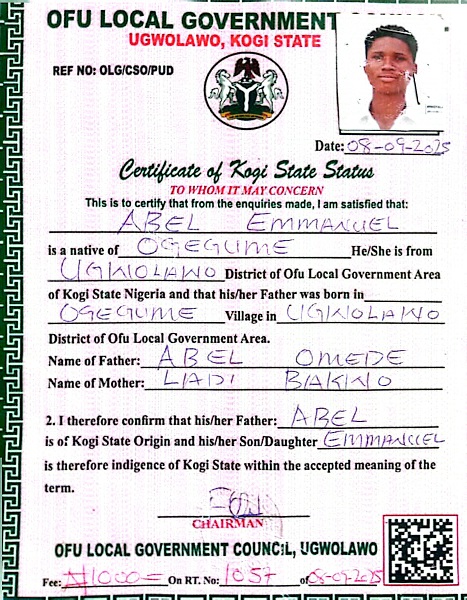 OFU LOCAL GOVERNMENT
UGWOLAWO, KOGI STATE
REF NO: OLG/CSO/PUD
Date: 08-09-2025
Certificate of Kogi State Status
TO WHOM IT MAY CONCERN
This is to certify that from the enquiries made, I am satisfied that:
ABEL EMMANUEL
is a native of OGEGUME He/She is from
UGWOLAWO District of Ofu Local Government Area
of Kogi State Nigeria and that his/her Father was born in
OGEGUME Village in UGWOLAWO
District of Ofu Local Government Area.
Name of Father: ABEL OMEDE
Name of Mother: LADI BAKWO
2. I therefore confirm that his/her Father: ABEL
is of Kogi State Origin and his/her Son/Daughter EMMANUEL
is therefore indigence of Kogi State within the accepted meaning of the
term.
CHAIRMAN
OFU LOCAL GOVERNMENT COUNCIL, UGWOLAWO
Fee: ₦1000= On RT. No: 1057 of 08-09-2025